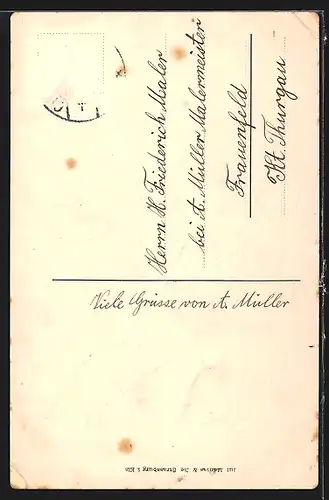 Herrn H. Friederich Maler
bei A. Müller Malermeister
Frauenfeld
Kt. Thurgau
Viele Grüsse von A. Müller